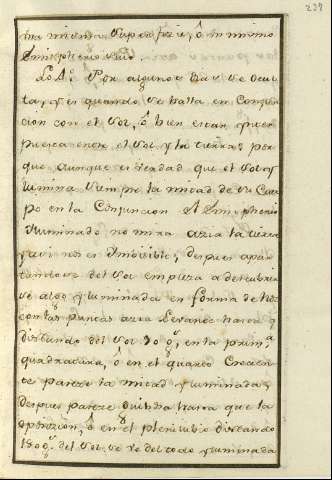 239
misma superficie, ô mismo
Emispherio suio
Lo 4º Por algunos dias se ocul
ta, y es quando se halla en Conjun
cion con el Sol, ô bien estar
puesta entre el Sol y la tierra; por
que aunque es verdad que el Sol y
lumina siempre la mitad de su Cuer
po en la Conjuncion el Emispherio
Yluminado no mira azia la tierra
y asi nos es Ymbisible; despues apar
tandose del Sol empieza a descubrir
se algo Yluminada en forma de
con las puntas azia Levante hasta q
distando del Sol 90 gs en la prima
quadratura, ô en el quarto Crecien
te parece la mitad Yluminada,
despues parece hasta que la
oposizion, ô en el plenilunio distando
180 gs del Sol se ve del todo Yluminada